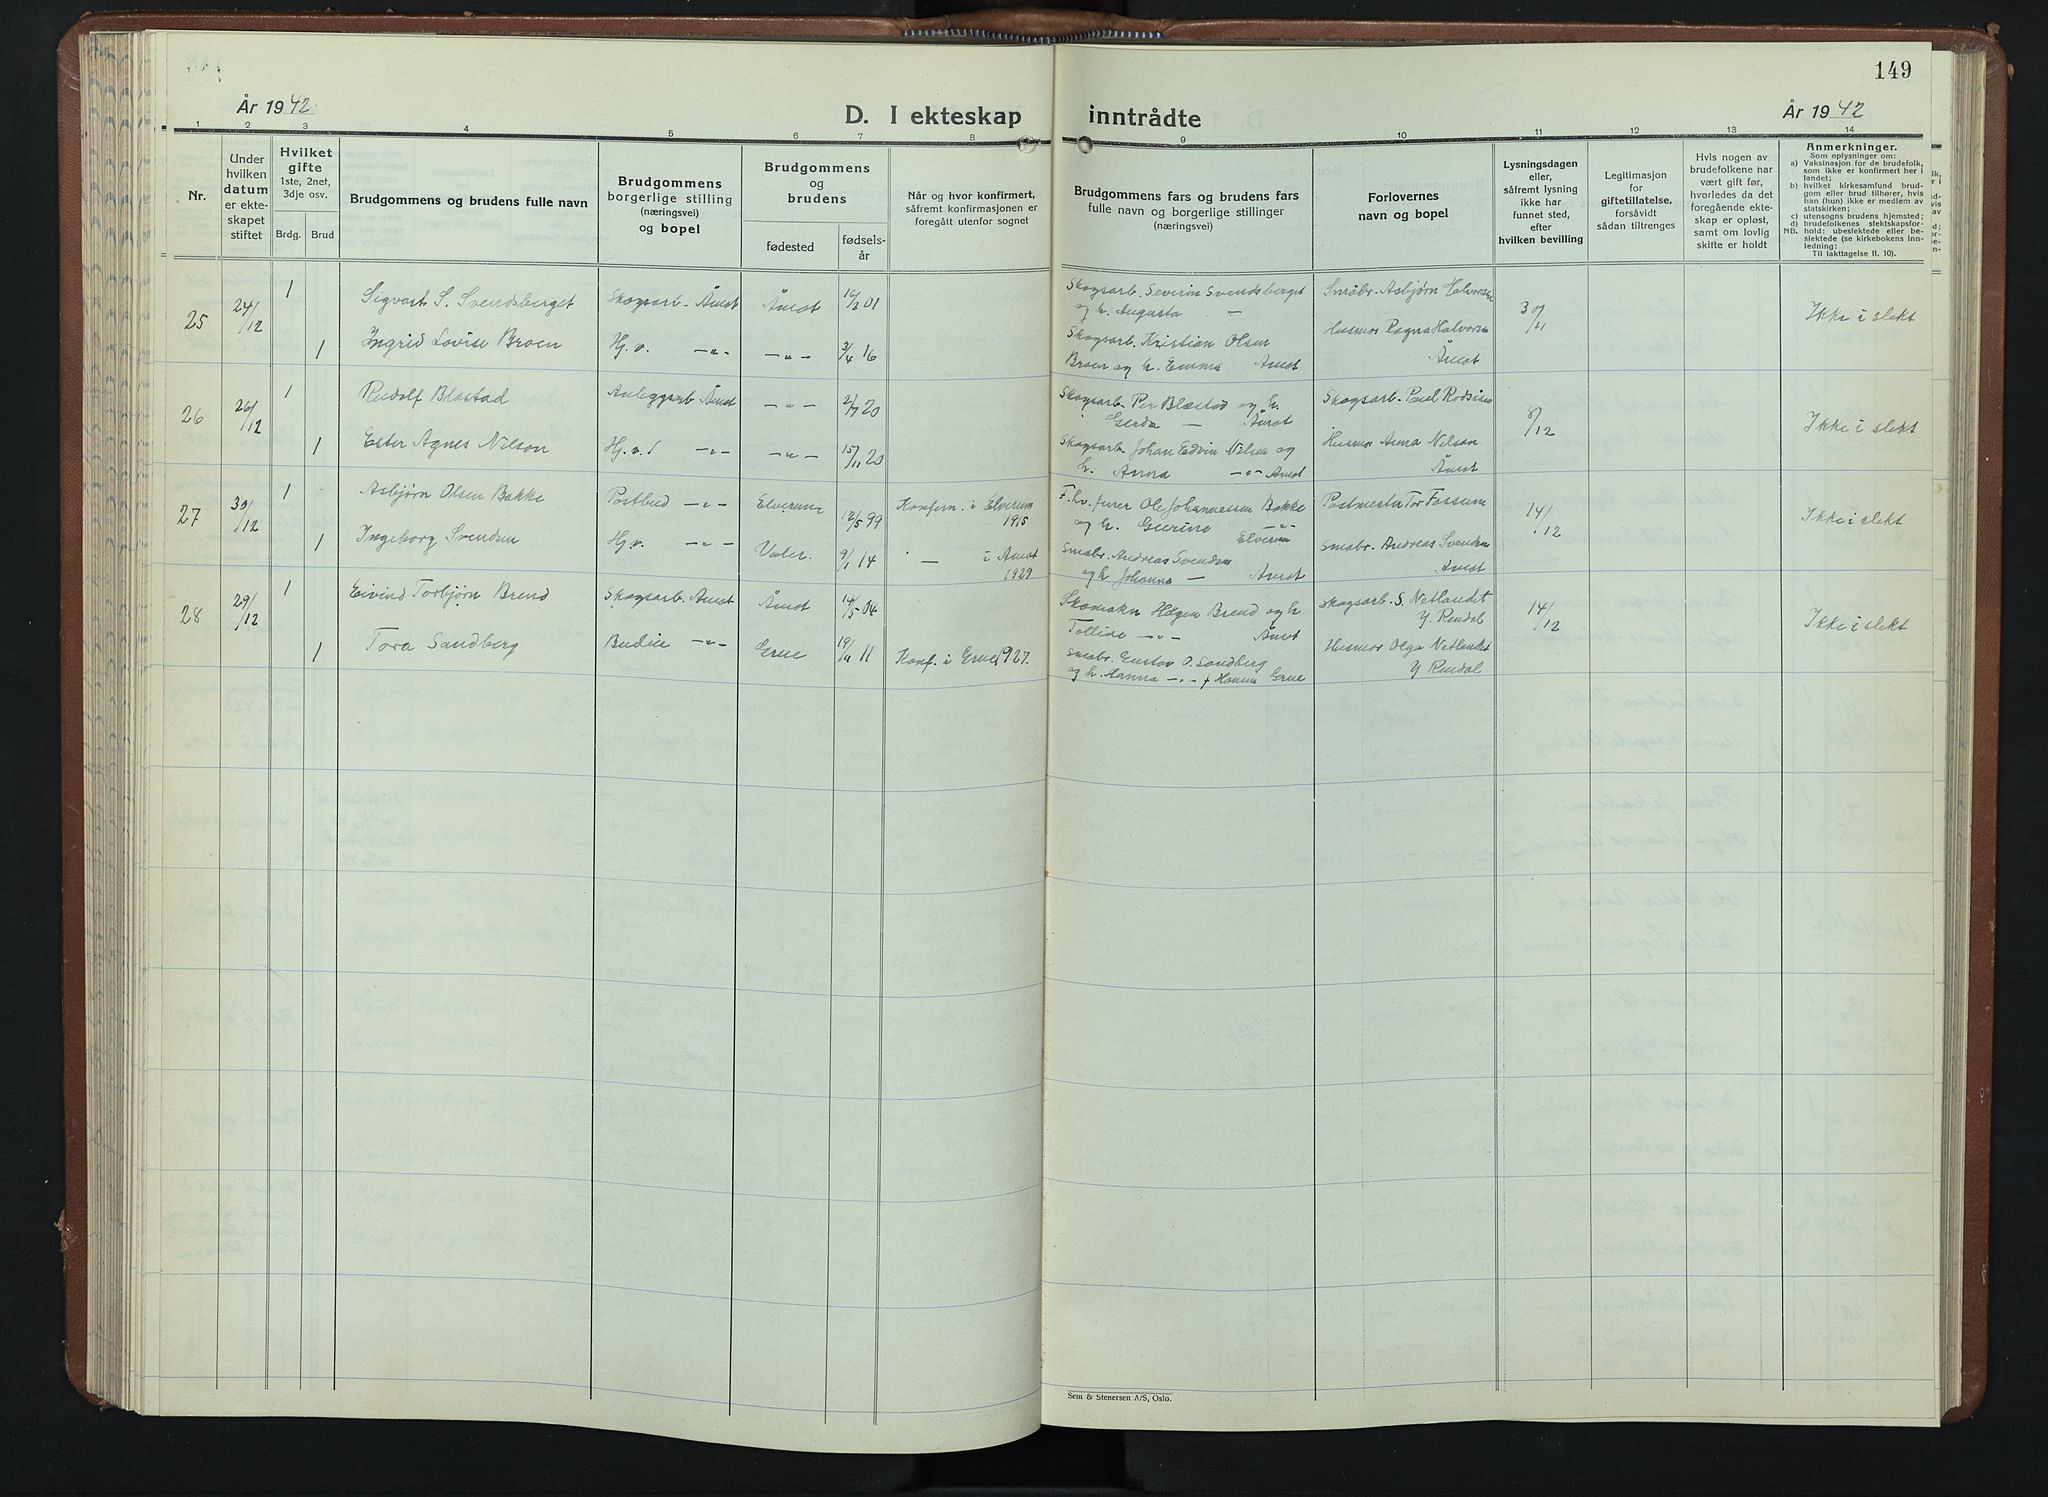 149
År 1942
D. I ekteskap
inntrådte
År 1942
1 2 3 4 5 6 7 8 9 10 11 12 13 14
Nr.
Under
hvilken
datum
er ekte-
skapet
stiftet
Hvilket
gifte
1ste, 2net,
3dje osv.
Brdg. Brud
Brudgommens og brudens fulle navn
Brudgommens
borgerlige stilling
(næringsvei)
og bopel
Brudgommens
og
brudens
fødested
fødsels-
år
Når og hvor konfirmert,
såfremt konfirmasjonen er
foregått utenfor sognet
Brudgommens fars og brudens fars
fulle navn og borgerlige stillinger
(næringsvei)
Forlovernes
navn og bopel
Lysningsdagen
eller,
såfremt lysning
ikke har
funnet sted,
efter
hvilken bevilling
Legitimasjon
for
giftetillatelse,
forsåvidt
sådan tiltrenges
Hvis nogen av
brudefolkene har
vært gift før,
hvorledes da det
foregående ekte-
skap er opløst,
samt om lovlig
skifte er holdt
Anmerkninger.
Som oplysninger om:
a) Vaksinasjon for de brudefolk,
som ikke er konfirmert her i
landet;
b) hvilket kirkesamfund brud-
gom eller brud tilhører, hvis
han (hun) ikke er medlem av
statskirken;
c) utensogns brudens hjemsted;
d) brudefolkenes slektskapsfor-
hold: ubeslektede eller be-
slektede (se kirkebokens inn-
ledning:
NB.
Til iakttagelse II. 10).
25 24/12 1 Sigvart S. Svendsberget Skogsarb. Åmot Åmot 01
Skogsarb. Severin Svendsberget
og h. Augusta —
Småbr. Asbjørn Halvorsen
30/11
Ikke i slekt
1 Ingrid Lovise Broen Hj.v. -"- -"- 3/4 16
Skogsarb. Kristian Olsen
Broen og h. Emma Åmot
Husmor Ragna Halvorsen
Åmot
26 26/12 1 Rudolf Blæstad Anleggsarb Åmot -"- 2/7 20
Skogsarb. Per Blæstad og h.
Gerda — Åmot
Skogsarb. Paul
8/12
Ikke i slekt
1 Ester Agnes Nilson Hj.v. -"- -"- 15/11 20
Skogsarb. Johan Edvin Nilsen og
h. Anna -"- Åmot
Husmor Anna Nelson
Åmot
27 30/12 1 Asbjørn Olsen Bakke Postbud -"- Elverum 12/5 99
Konfirm. i Elverum
1915
F.hv. furer Ole Johannessen Bakke
og h. Gurine -"-
Elverum
Postmester Tor Fossum
14/12
Ikke i slekt
1 Ingeborg Svendsen Hj.v. -"- Våler. 9/1 14
— i Åmot
1929
Småbr. Andreas Svendsen
og h Johanna — Åmot
Småbr. Andreas Svendsen
Åmot
28 29/12 1 Eivind Torbjørn Brend Skogsarb. Åmot Åmot 14/5 04
Skomaker Høgen Brend og h
Tolline -"- Åmot
Skogsarb. S. Netlandet
Y. Rendal
14/12
Ikke i slekt
1 Tora Sandberg Budeie -"- Grue 11
Konf. i Grue 1927.
Småbr. Gustav O. Sandberg
og h. Hanna -"- Grue
Husmor Olga Netlandet
Y Rendal
Sem & Stenersen A/S, Oslo.